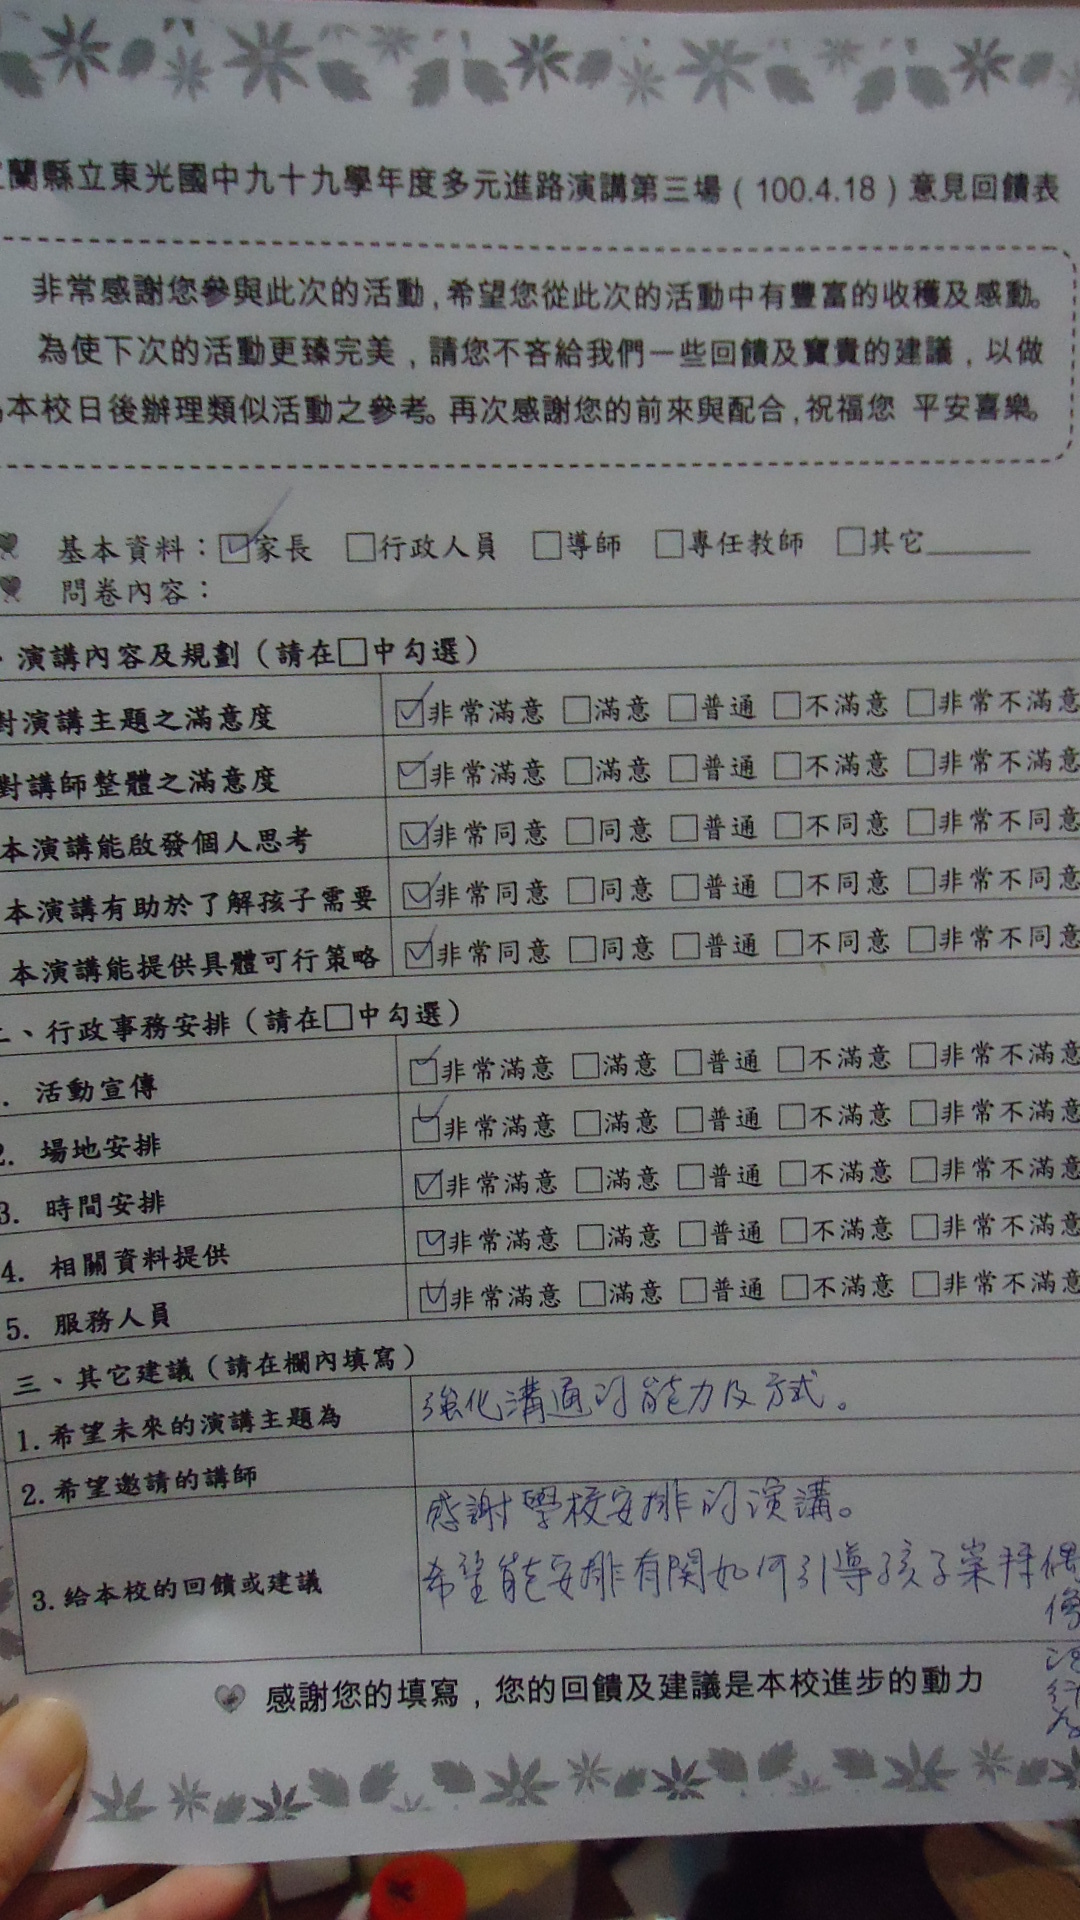 蘭縣立東光國中九十九學年度多元進路演講第三場(100.4.18)意見回饋表
非常感謝您參與此次的活動,希望您從此次的活動中有豐富的收穫及感動。
為使下次的活動更臻完美,請您不吝給我們一些回饋及寶貴的建議,以做
本校日後辦理類似活動之參考。再次感謝您的前來與配合,祝福您 平安喜樂。
基本資料:☑家長 □行政人員 □導師 □專任教師 □其它______
問卷內容:
、演講內容及規劃(請在□中勾選)
對演講主題之滿意度 ☑非常滿意 □滿意 □普通 □不滿意 □非常不滿意
對講師整體之滿意度 ☑非常滿意 □滿意 □普通 □不滿意 □非常不滿意
本演講能啟發個人思考 ☑非常同意 □同意 □普通 □不同意 □非常不同意
本演講有助於了解孩子需要 ☑非常同意 □同意 □普通 □不同意 □非常不同意
本演講能提供具體可行策略 ☑非常同意 □同意 □普通 □不同意 □非常不同意
二、行政事務安排(請在□中勾選)
. 活動宣傳 ☑非常滿意 □滿意 □普通 □不滿意 □非常不滿意
2. 場地安排 ☑非常滿意 □滿意 □普通 □不滿意 □非常不滿意
3. 時間安排 ☑非常滿意 □滿意 □普通 □不滿意 □非常不滿意
4. 相關資料提供 ☑非常滿意 □滿意 □普通 □不滿意 □非常不滿意
5. 服務人員 ☑非常滿意 □滿意 □普通 □不滿意 □非常不滿意
三、其它建議(請在欄內填寫)
1.希望未來的演講主題為 強化溝通的能力及方式。
2.希望邀請的講師
3.給本校的回饋或建議 感謝學校安排的演講。
希望能安排有関如何引導孩子崇拜偶
像
行
為
感謝您的填寫,您的回饋及建議是本校進步的動力